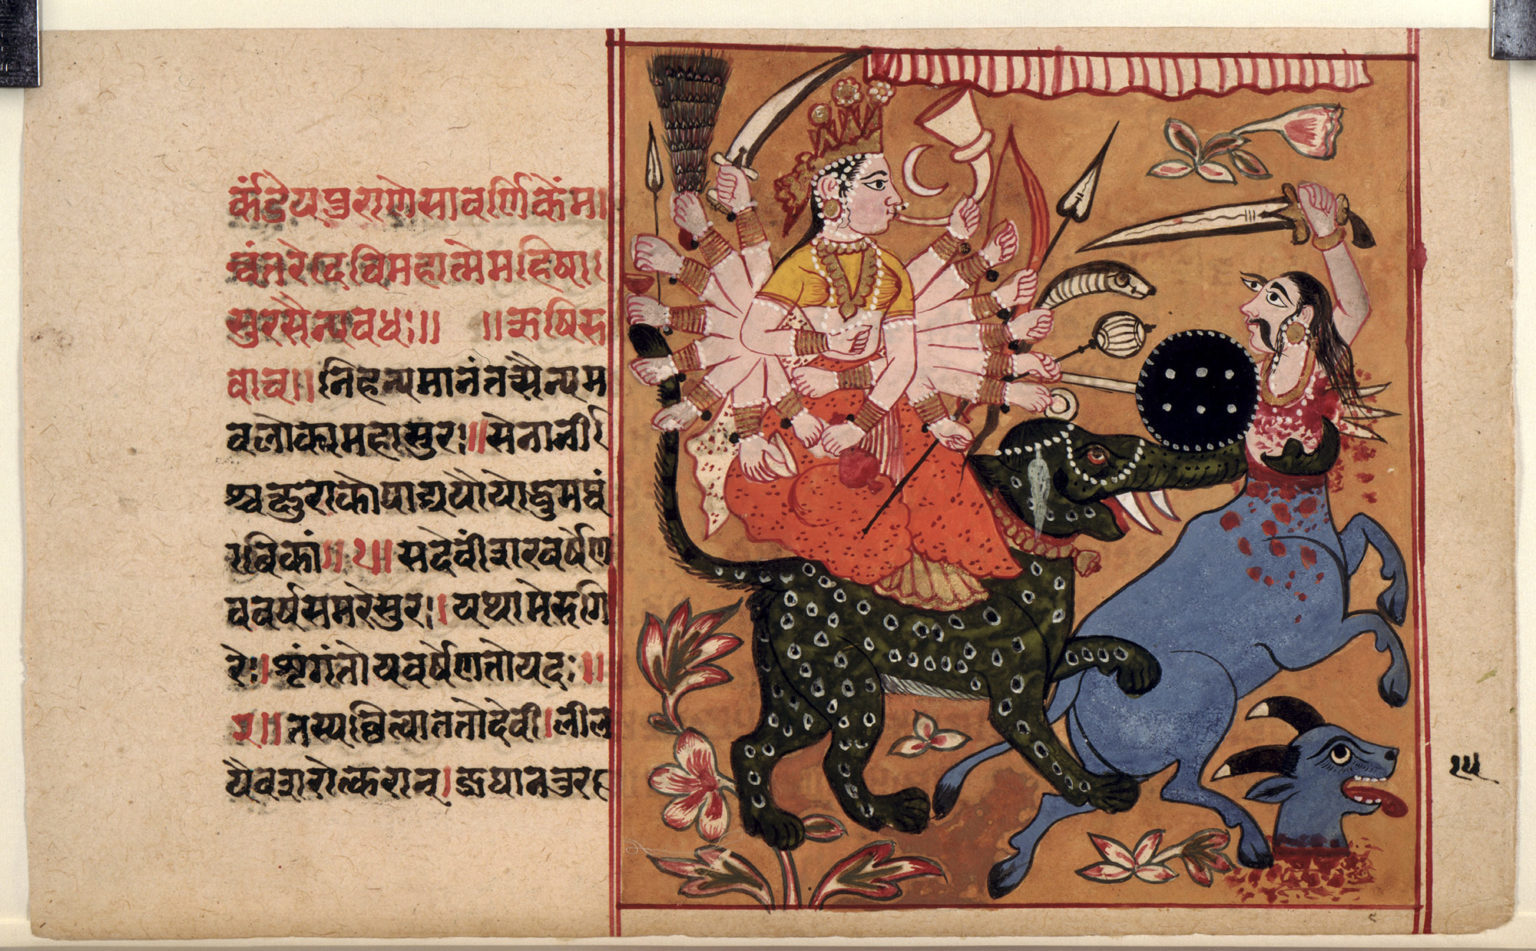 र्कंडेयपुराणेसावर्णिकेंमा
न्वंतरेदेविमहात्मेमहिषा
सुरसैन्यवधः॥ ॥ऋषिरु
वाच॥निहन्यमानंतत्सैन्यम
वलोक्यमहासुरः॥सेनानी
श्चिक्षुराकोपाद्ययौयोद्धुमथां
बिकां॥१॥सदेवींशरवर्षेण
ववर्षसमरेसुरः।यथामेरुगि
रेःशृंगंतोयवर्षेणतोयदः॥
२॥तस्यछित्वाततोदेवी।लील
यैवशरोत्करान्।जघानतुर